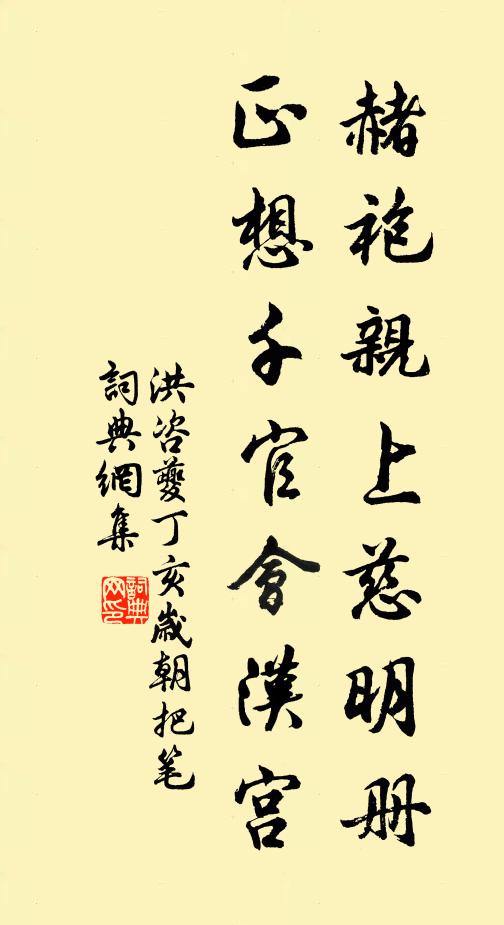 赭袍親上慈明册
正想千官會漢宮
洪咨夔丁亥歲朝把笔
詞典網集
詞典网印